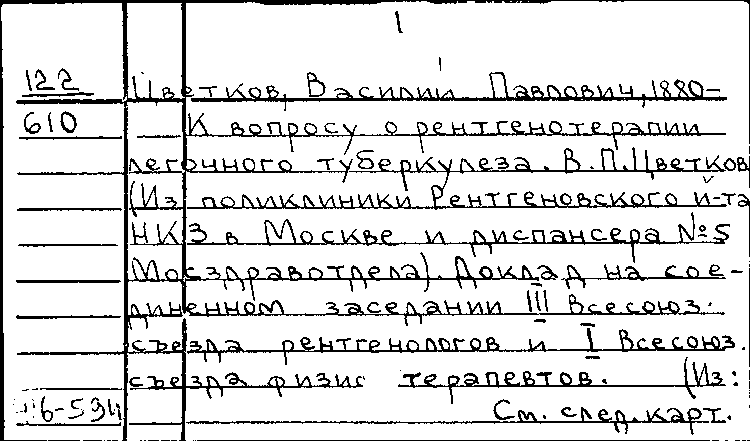 1
122 Цветков, Василий Павлович, 1880-
610 К вопросу о рентгенотерапии
легочного туберкулеза. В.П.Цветков
(Из поликлиники Рентгеновского и-та
НКЗ в Москве и диспансера №5
Мосздравотдела). Доклад на сое-
диненном заседании III Всесоюз.
съезда рентгенологов и I Всесоюз.
съезда физис терапевтов. (Из:
См. след. карт.